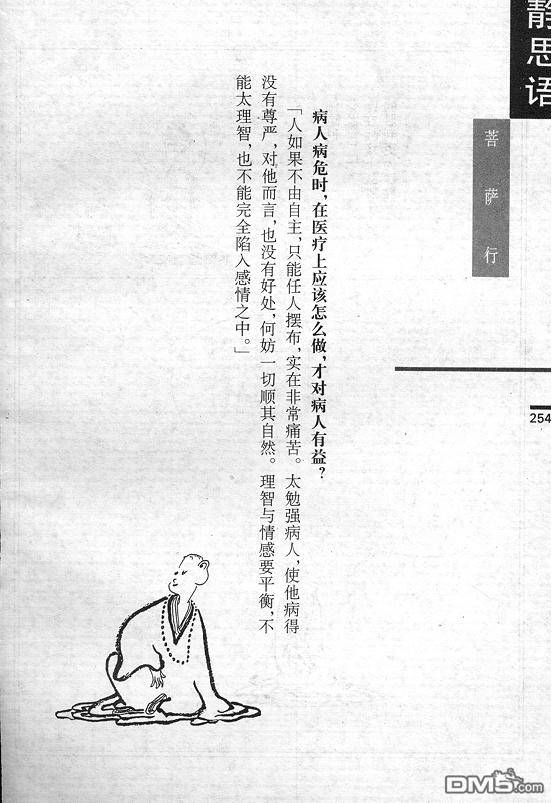 静思语
菩萨行
254
病人病危时，在医疗上应该怎么做，才对病人有益？
「人如果不由自主，只能任人摆布，实在非常痛苦。太勉强病人，使他病得
没有尊严，对他而言，也没有好处，何妨一切顺其自然。理智与情感要平衡，不
能太理智，也不能完全陷入感情之中。」
DM5.com